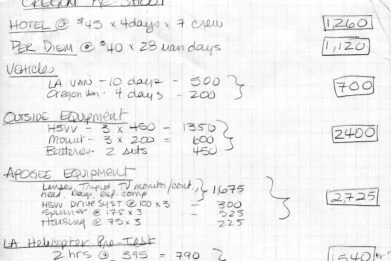 OREGON RE-SHOOT
HOTEL @ $45 x 4days x 7 crew 1260
PER DIEM @ $40 x 28 Man days 1,120
VEHICLES
LA VAN - 10 days - 500
Oregon Van - 4 days - 200 700
OUTSIDE EQUIPMENT
HSVV - 3 x 450 - 1350
Mount - 3 x 200 = 600 2400
Batteries - 2 sets 450
APOGEE EQUIPMENT
Lenses, Tripod, TV monitor/cont.
Head, Bags, exp. comp 1,675
HSVV DRIVE SYST @ 100 x 3 - 300 2,725
Spinner @ 175 x 3 - 525
Housing @ 75 x 3 225
LA Helicopter Pre-Test
2 hrs @ 395 = 790 1540